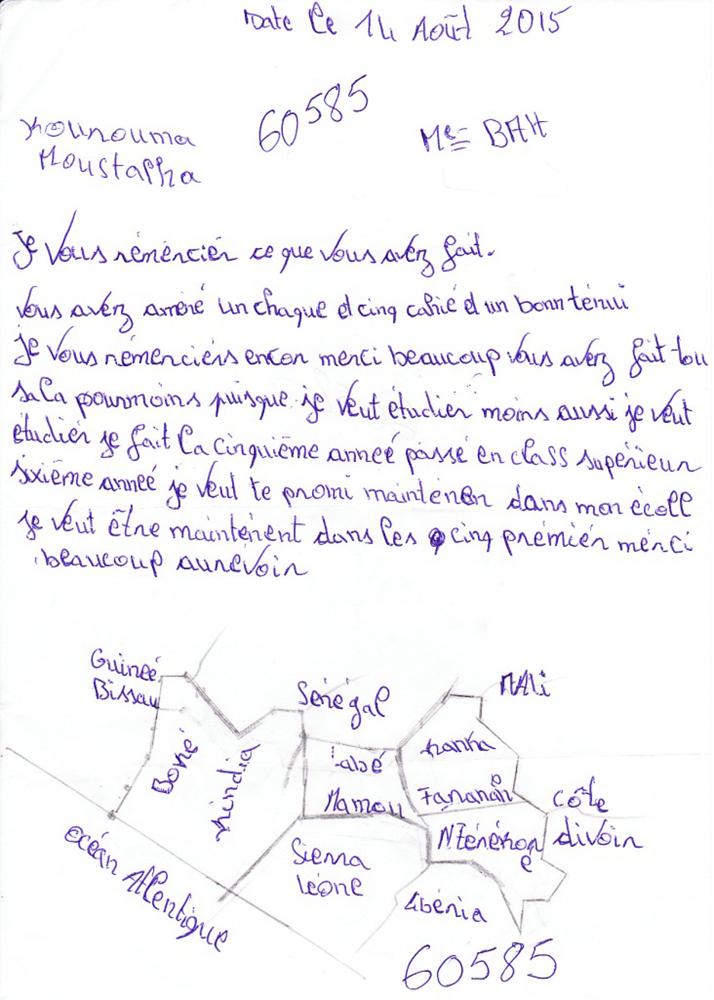 Date le 14 Août 2015
60585
Kounouma
Moustapha
Mr BAH
Je vous rémérciér ce que vous avéz fait.
vous avéz améné un chaque et cinq cahié et un bonn ténui
je vous rémérciérs encor merci beaucoup vous avéz fait tou
sa la pourmoins puisque je veut étudiér moins aussi je veut
étudiér je fait la cinquiéme anneé passé en class supériéur
sixiéme anneé je veut te promi maintenen dans mon écoll
je veut être maintenent dans les cinq prémiér mérci
beaucoup aurévoir
Guineé
Bissau
Sénégal
MALi
Boké
kindia
labé
Mamou
kanka
Faranah
Côte
divoir
N'Zérékor
é
océan Atlentique
Sierra
léone
Libéria
60585